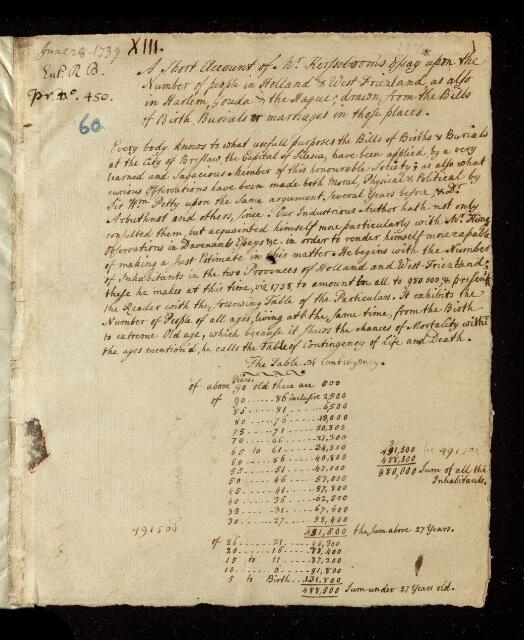 June 28. 1739
XIII.
Ent. R B.
Pr. No. 450.
60
A Short Account of Mr. Kersseboom's Essay upon the *
Number of people in Holland & West Friezland as also
in Harlem, Gouda & the Hague; drawn from the Bills
of Birth, Burials or marriages in those places.
Every body knows to what usefull purposes the Bills of Births & Burials
at the City of Breslaw, the Capital of Silesia, have been applied by a very
learned and Sagacious Member of this honourable Society; as also what
curious Observations have been made both Moral, Physical & Political by
Sir Wm Petty upon the same argument, Several Years before, & Dr.
Arbuthnot and others, since. Our Industrious Author hath not only
consulted them, but acquainted himself more particularly with Mr. King
Observations in Davenants Essays &c. in order to render himself more capable
of making a Just Estimate in this matter. He begins with the Number
of Inhabitants in the two Provinces of Holland and West-Friezland;
these he makes at this time, viz 1738, to amount in all to 980 000, & presents
the Reader with the following Table of the Particulars. It exhibits the
Number of People of all ages, living at the Same time, from the Birth
to extreme Old age, which because it shews the chances of Mortality within
the ages mention'd, he calls the Table of Contingency of Life and Death.
The Table of Contingency.
Years
of above 90 old there are 500
of 90 ...... 86 inclusive 2,500
85 ...... 81 ...... 6,500
80 ...... 76 ...... 13,000
75 ...... 71 ...... 20,300
70 ...... 66 ...... 27,300
65 to 61 ...... 34,300
60 ...... 56 ...... 40,800
55 ...... 51 ...... 47,000
50 ...... 46 ...... 53,000
45 ...... 41 ...... 57,800
40 ...... 36 ...... 62,500
35 ...... 31 ...... 67,600
30 ...... 27 ...... 58,400
491,500 the Sum above 27 Years.
491,500
488,500
980,000 Sum of all the
Inhabitants.
491500
491500
of 26 ...... 21 ...... 94,300
20 ...... 16 ...... 83,400
15 to 11 ...... 87,200
10 ...... 6 ...... 91,800
5 to Birth ...... 131,800
488,500 Sum under 27 Years old.